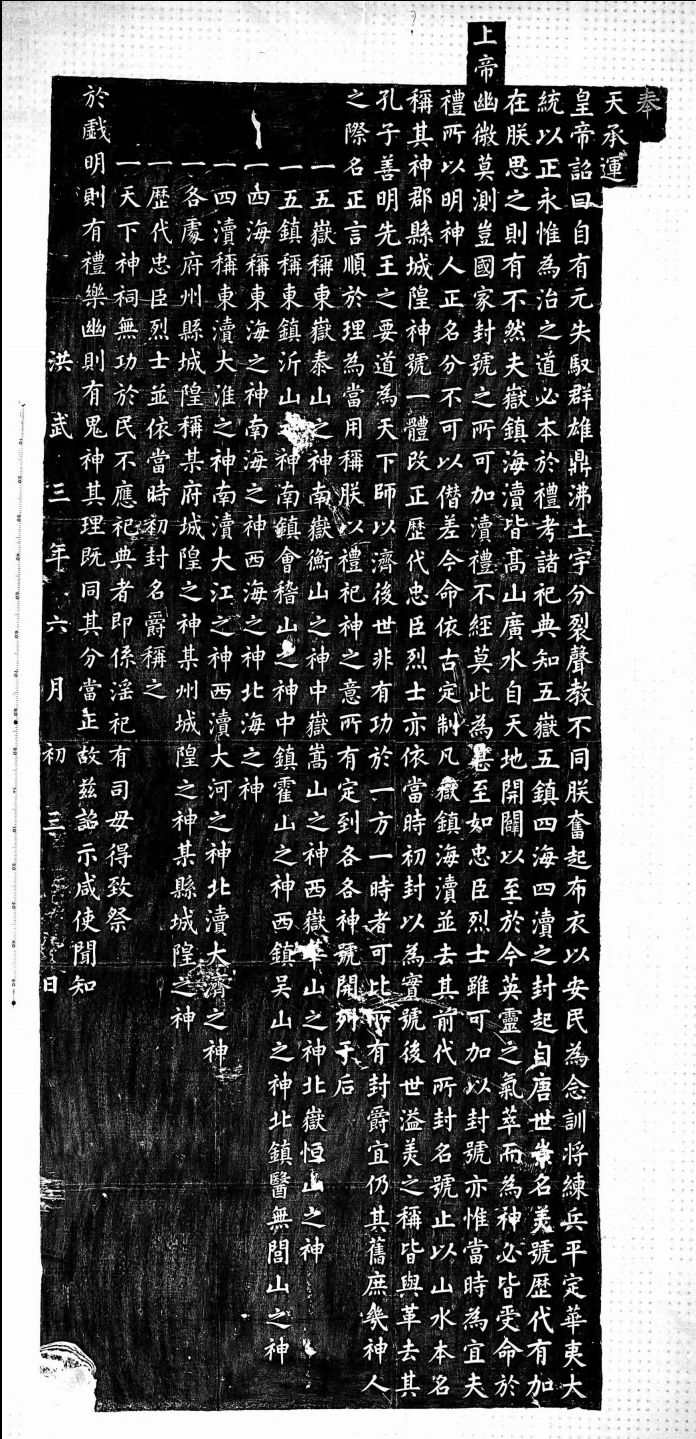 奉
天承運
皇帝詔曰自有元失馭群雄鼎沸土宇分裂聲教不同朕奮起布衣以安民為念訓將練兵平定華夷大
統以正永惟為治之道必本於禮考諸祀典知五嶽五鎮四海四瀆之封起自唐世崇名美號歷代有加
在朕思之則有不然夫嶽鎮海瀆皆髙山廣水自天地開闢以至於今英靈之氣萃而為神必皆受命於
上帝幽微莫測豈國家封號之所可加瀆禮不經莫此為甚至如忠臣烈士雖可加以封號亦惟當時為宜夫
禮所以明神人正名分不可以僭差今命依古定制凡嶽鎮海瀆並去其前代所封名號止以山水本名
稱其神郡縣城隍神號一體改正歷代忠臣烈士亦依當時初封以為實號後世溢美之稱皆與革去其
孔子善明先王之要道為天下師以濟後世非有功於一方一時者可比所有封爵宜仍其舊庶幾神人
之際名正言順於理為當用稱朕以禮祀神之意所有定到各各神號開列于后
一五嶽稱東嶽泰山之神南嶽衡山之神中嶽嵩山之神西嶽華山之神北嶽恒山之神
一五鎮稱東鎮沂山之神南鎮會稽山之神中鎮霍山之神西鎮吴山之神北鎮醫無閭山之神
一四海稱東海之神南海之神西海之神北海之神
一四瀆稱東瀆大淮之神南瀆大江之神西瀆大河之神北瀆大濟之神
一各處府州縣城隍稱某府城隍之神某州城隍之神某縣城隍之神
一歷代忠臣烈士並依當時初封名爵稱之
一天下神祠無功於民不應祀典者即係淫祀有司毋得致祭
於戲明則有禮樂幽則有鬼神其理既同其分當正故茲詔示咸使聞知
洪武三年六月初三日